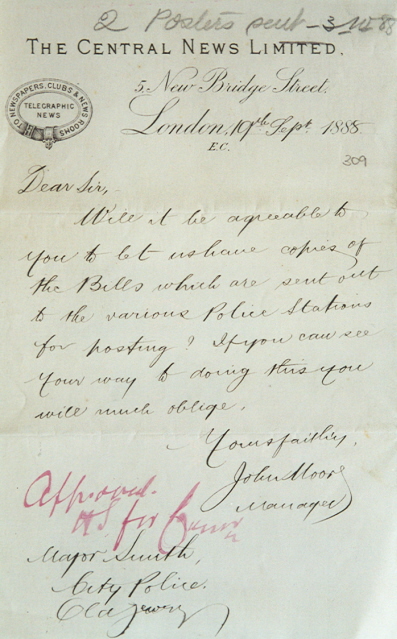 2 Posters sent
THE CENTRAL NEWS LIMITED.
TO NEWSPAPERS, CLUBS & NEWS ROOMS
TELEGRAPHIC
NEWS
5 New Bridge Street.
London, 19th Sept 1888
E.C.
309
Dear Sir,-
Will it be agreeable to
you to let us have copies of
the Bills which are sent out
to the various Police Stations
for posting? If you can see
your way to doing this you
will much oblige.
Yours faithly,
John Moore
Manager
Approved.
HS for
Major Smith,
City Police.
Old Jewry